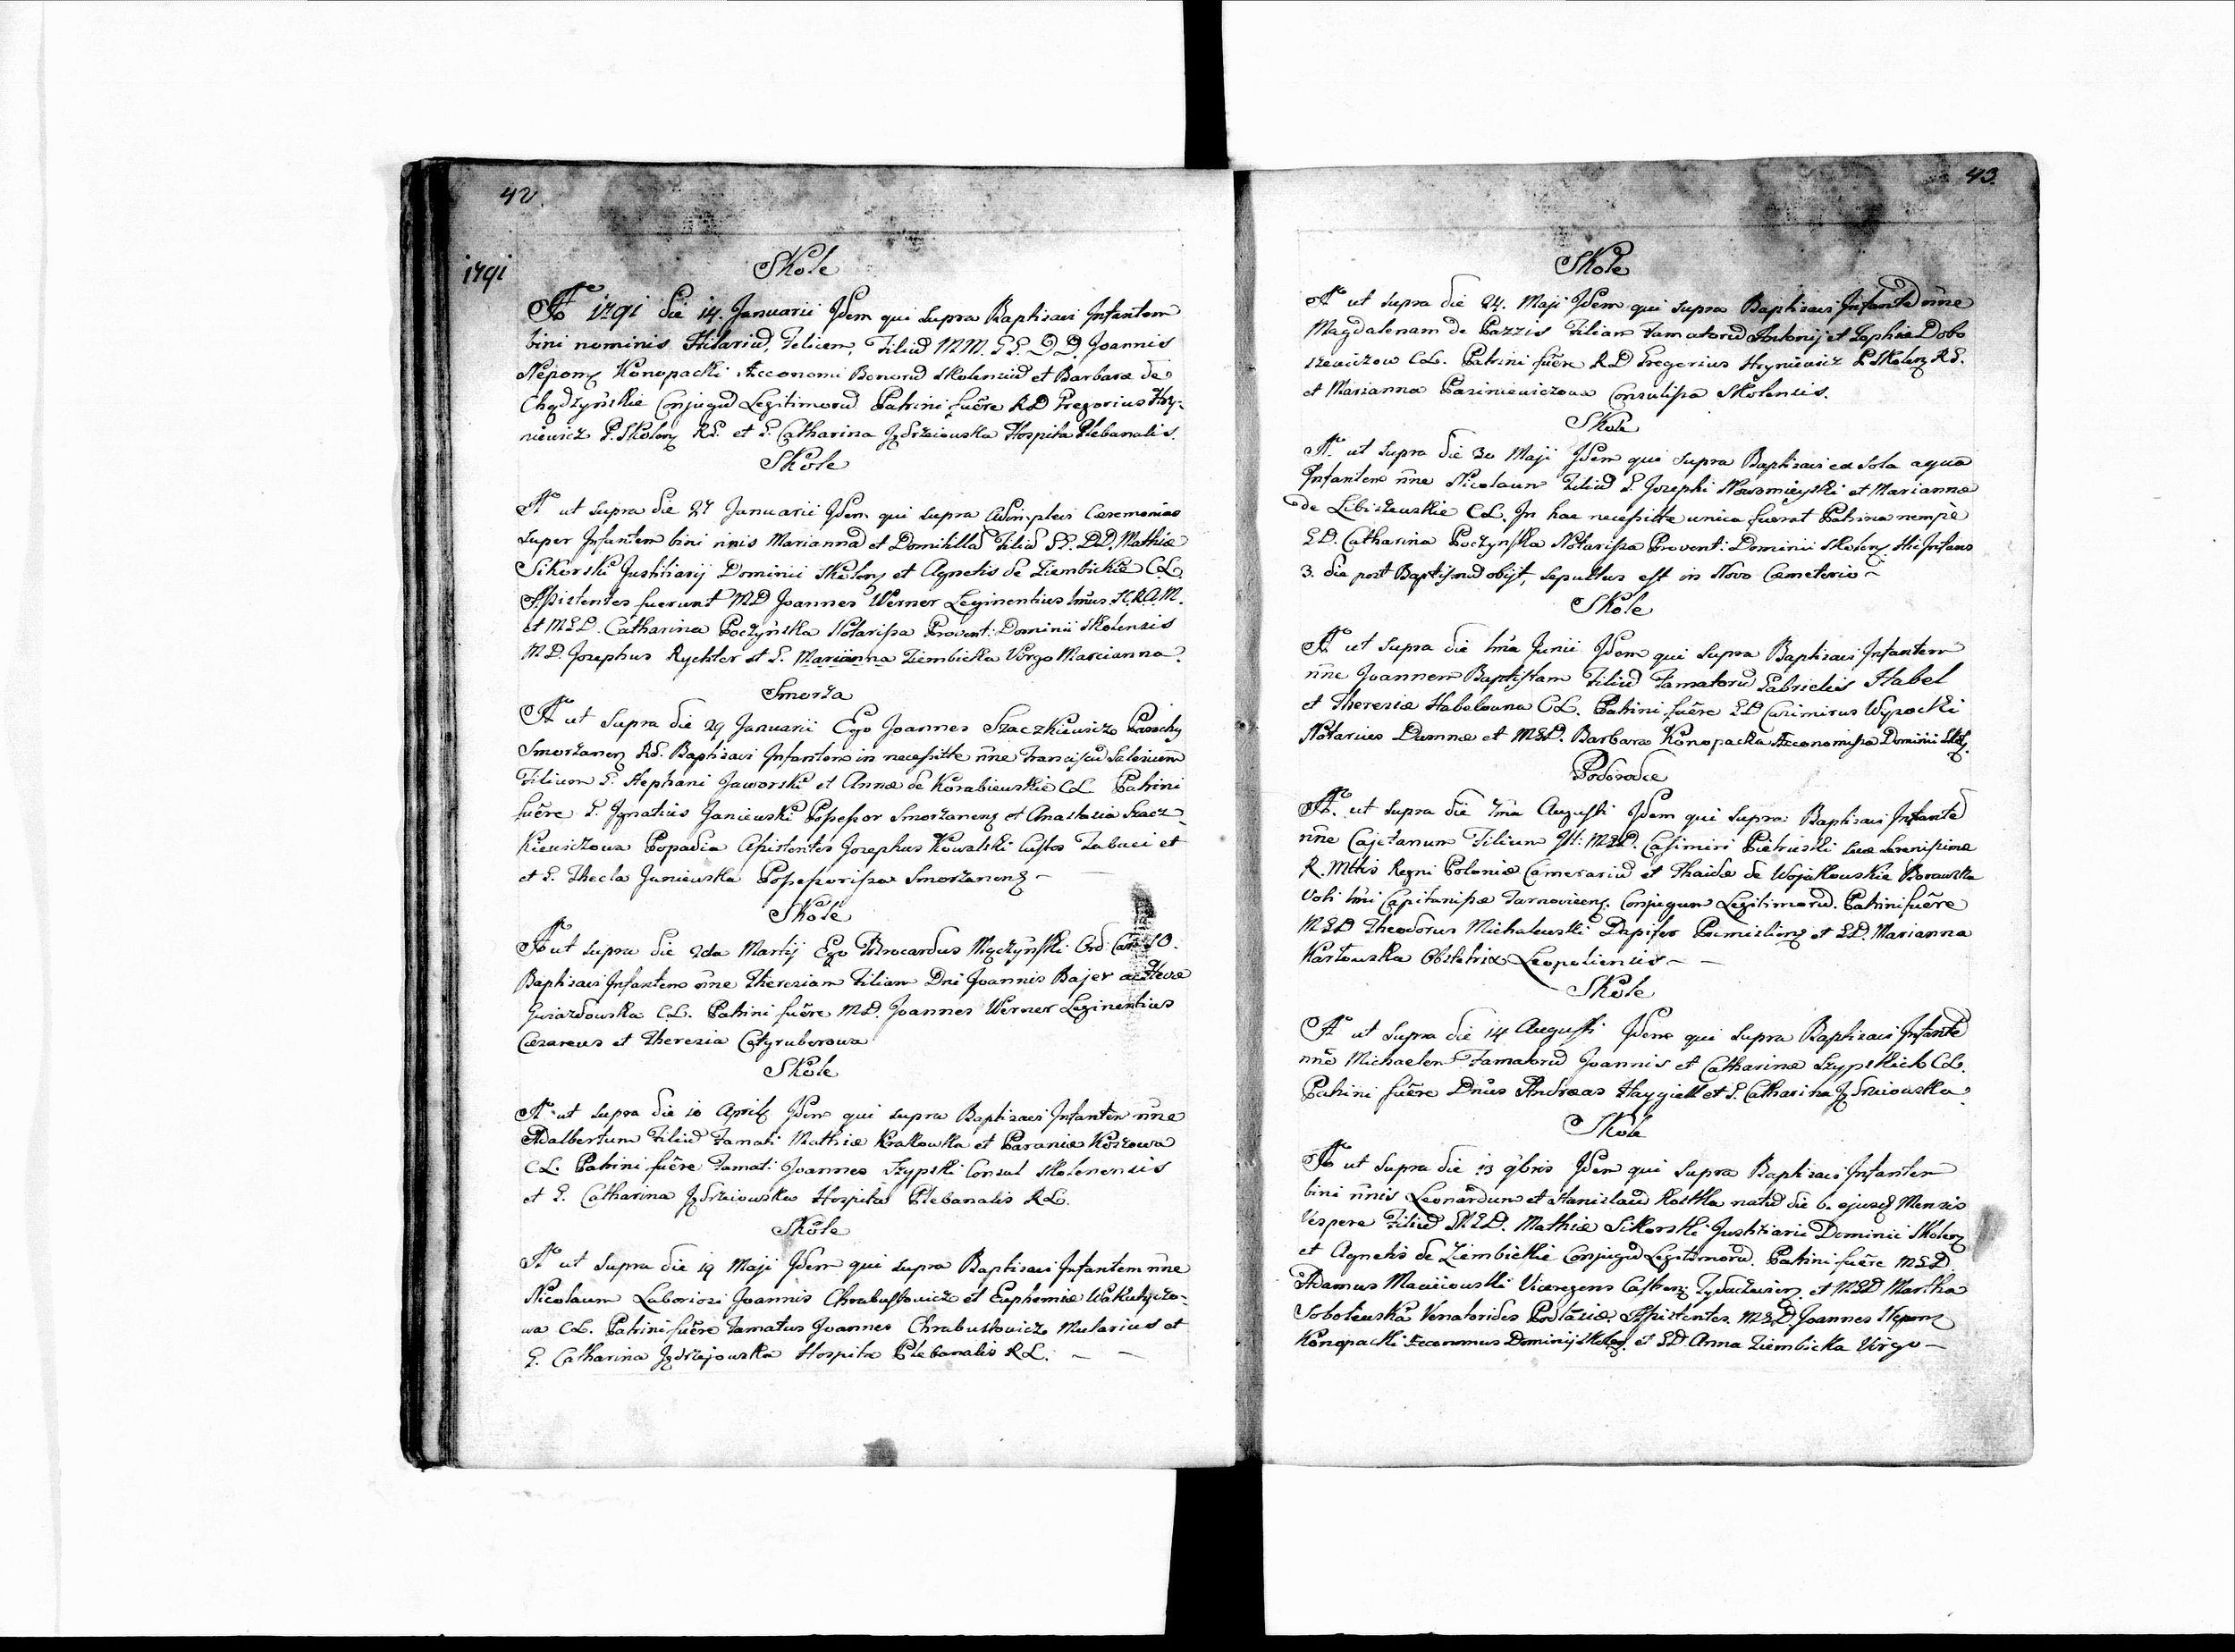 42.
1791
Skole
Aº 1791 die 14. Januarii Idem qui supra Baptisavi Infantem
bini nominis Hilariū, Felicem, Filiū MM. GG. DD. Joannis
Nepom Konopacki Æconomi Bonorū Skolensiū et Barbaræ de
Chądzyńskie Conjugū Legitimorū Patrini fuêre RD Gregorius Hry-
niewicz P. Skolen RG. et G. Catharina Jędrzeiowska Hospita Plebanalis.
Skole
Aº ut supra die 27 Januarii Idem qui supra Adimplevi Cæremonias
super Infantem bini nnis Mariannā et Domitillā Filiā GG. DD. Mathiæ
Sikorski Justitiarij Dominii Skolen et Agnetis de Ziembickie C.L.
Assistentes fuerunt MD Joannes Werner Leginentius
et MGD. Catharina Poczyńska Notarissa Provent: Dominii Skolensis
MD. Josephus Rychter et G. Marianna Ziembicka Virgo Marcianna.
Smorza
Aº ut supra die 29 Januarii Ego Joannes Szaczkiewicz Parochy
Smorzanen RG. Baptisavi Infantem in necessitte nne Franciscū Salesium
Filium G. Stephani Jaworski et Annæ de Korabiewskie CL Patrini
fuêre G. Ignatius Janiewski Possessor Smorzanens et Anastasia Szacz-
kiewiczowa Popadia Assistentes Josephus Kowalski Custos Tabaci et
et G. Thecla Janiewska Possessorissa Smorzanens –
Skole
Aº ut supra die 2da Martij Ego Brocardus Mączyński Ord
Baptisavi Infantem nne Theresiam Filiam Dni Joannis Bajer ac Hevæ
Gwiazdowska C.L. Patrini fuêre MD. Joannes Werner Leginentius
Cæsareus et Theresia Cetgruberowa
Skole
Aº ut supra die 10 April Idem qui supra Baptisavi Infantem nne
Adalbertum Filiū Famati Mathiæ Krakowka et Paraniæ Koszowa
C.L. Patrini fuêre Famat: Joannes Szypski Consul Skolenensis
et G. Catharina Jędrzeiowska Hospita Plebanalis RL.
Skole
Aº ut supra die 19 Maji Idem qui supra Baptisavi Infantem nne
Nicolaum Laboriosi Joannis Chrabustowicz et Euphemiæ Wakulyczo-
wa CL. Patrini fuêre Famatus Joannes Chrabustowicz Mularius et
G. Catharina Jędrzejowska Hospita Plebanalis RL. – –
43.
Skole
Aº ut supra die 24. Maji Idem qui supra Baptisavi Infantē nne
Magdalenam de Pazzis Filiam Famatorū Antonij et Zophiæ Dobo
szewiczow CL. Patrini fuêre RD Gregorius Hryniewicz P. Skolen RG.
et Marianna Pasiniewiczowa Consulissa Skolensis.
Skole
Aº ut supra die 30 Maji Idem qui supra Baptisavi ex sola aqua
Infantem nne Nicolaum Filiū G. Josephi Nowomieyski et Mariannæ
de Libiszewskie CL. In hac necessitte unica fuerat Patrina nempè
GD. Catharina Poczynska Notarissa Provent: Dominii Skolen. Hic Infans
3. die post Baptismū obijt, sepultus est in Novo Cæmeterio –
Skole
Aº ut supra die 1ma Junii Idem qui supra Baptisavi Infantem
nne Joannem Baptistam Filiū Famatorū Gabrielis Habel
et Theresiæ Habelowna CL. Patrini fuêre GD Casimirus Wysocki
Notarius Damnæ et MGD. Barbara Konopacka Æconomissa Dominii Skol.
Podorodce
Aº ut supra die 7ma Augusti Idem qui supra Baptisavi Infantē
nne Cajetanum Filium Ill: MGD. Casimiri Pietruski suæ Serenissimæ
R. Mttis Regni Poloniæ Camerariū et Thaidæ de Wojakowskie Borowska
Capitanissæ Tarnoviecen. Conjugum Legitimorū. Patrini fuêre
MGD Theodorus Michalewski Dapifer Præmislien et GD. Marianna
Karłowska Obstetrix Leopoliensis – –
Skole
Aº ut supra die 14 Augusti Idem qui supra Baptisavi Infantē
nnē Michaelem Famatorū Joannis et Catharinæ Szypskich CL.
Patrini fuêre Dnus Andreas Haygiell et G. Catharina Jędrzeiowska
Skole
Aº ut supra die 13 9bris Idem qui supra Baptisavi Infantem
bini nnis Leonardum et Stanislaū Kostka natū die 6. ejusd Mensis
Vespere Filiū MGD. Mathiæ Sikorski Justitiarii Dominii Skolen
et Agnetis de Ziembickie Conjugū Legitimorū. Patrini fuêre MGD.
Adamus Maciiowski Viceregens Castren Zydaczovien. et MGD Martha
Sobolewska Venatorides Podlaviæ. Assistentes MGD. Joannes Nepom
Konopacki Æconomus Dominij Skolen. et GD. Anna Ziembicka Virgo –